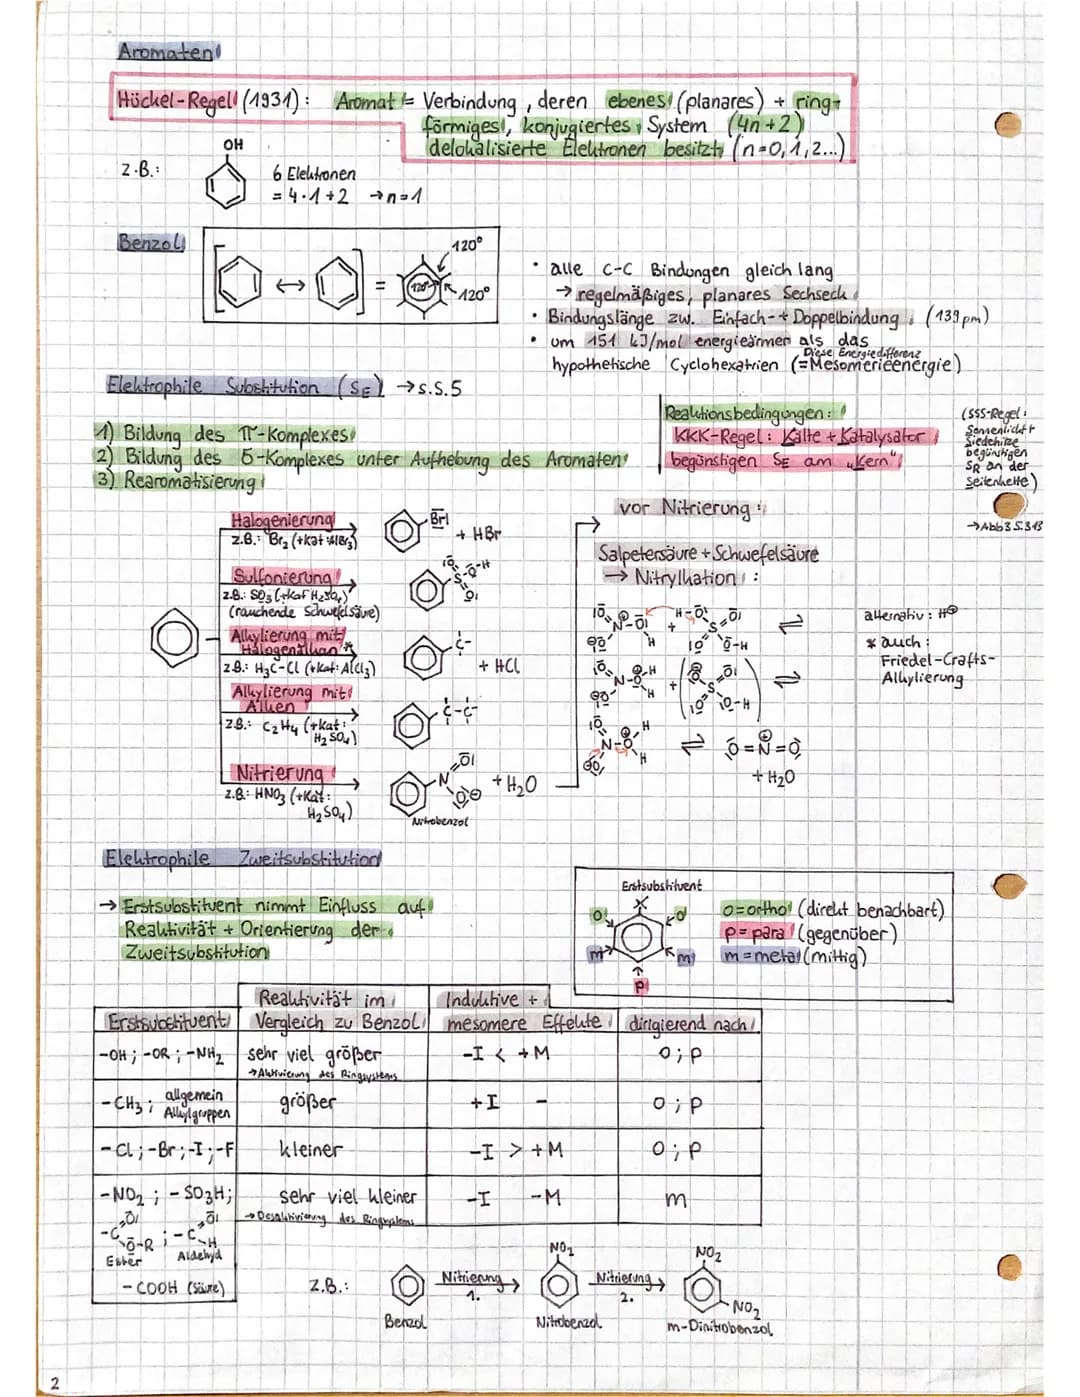 Aromaten
Hückel-Regel (1931): Aromat = Verbindung, deren ebenes (planares) + ring-
förmiges, konjugiertes System (4n+2)
delokalisierte Elektronen besitzt (n=0,1,2...)
z.B.:
OH
6 Elektronen
= 4·1+2 → n=1
Benzol
120°
120°
120°
• alle C-C Bindungen gleich lang
→ regelmäßiges, planares Sechseck
• Bindungslänge zw. Einfach- + Doppelbindung (139pm)
• um 151 kJ/mol energieärmer als das
hypothetische Cyclohexatrien (=Mesomerieenergie)
Diese Energiedifferenz
Elektrophile Substitution (SE) → s.S.5
1) Bildung des π-Komplexes
2) Bildung des σ-Komplexes unter Aufhebung des Aromaten
3) Rearomatisierung
Reaktionsbedingungen:
KKK-Regel: Kälte + Katalysator
begünstigen SE am „Kern"
(SSS-Regel:
Sonnenlicht +
Siedehitze
begünstigen
SR an der
Seitenkette)
→Abb3 S.313
Halogenierung
z.B.: Br₂ (+Kat: AlBr₃)
Br
+ HBr
Sulfonierung
z.B.: SO₃ (+Kat H₂SO₄)
(rauchende Schwefelsäure)
Alkylierung mit
Halogenalkan *
z.B.: H₃C-Cl (+Kat: AlCl₃)
+ HCl
Alkylierung mit
Alken
z.B.: C₂H₄ (+Kat:
H₂SO₄)
Nitrierung
z.B.: HNO₃ (+Kat:
H₂SO₄)
Nitrobenzol
+ H₂O
vor Nitrierung:
Salpetersäure + Schwefelsäure
→ Nitrylkation:
+ H₂O
alternativ: H⊕
* auch:
Friedel-Crafts-
Alkylierung
Elektrophile Zweitsubstitution
→ Erstsubstituent nimmt Einfluss auf
Reaktivität + Orientierung der
Zweitsubstitution
Erstsubstituent
X
o
o
m
m
p
o=ortho (direkt benachbart)
p=para (gegenüber)
m=meta (mittig)
Erstsubstituent
Reaktivität im
Vergleich zu Benzol
Induktive +
mesomere Effekte
dirigierend nach
-OH; -OR; -NH₂
sehr viel größer
→Aktivierung des Ringsystems
-I < +M
o; p
-CH₃; allgemein
Alkylgruppen
größer
+I -
o; p
-Cl; -Br; -I; -F
kleiner
-I > +M
o; p
-NO₂; -SO₃H;
sehr viel kleiner
→Desaktivierung des Ringsystems
-I -M
m
Ester
Aldehyd
-COOH (Säure)
z.B.:
Benzol
Nitrierung
1.
NO₂
Nitrobenzol
Nitrierung
2.
NO₂
NO₂
m-Dinitrobenzol
2